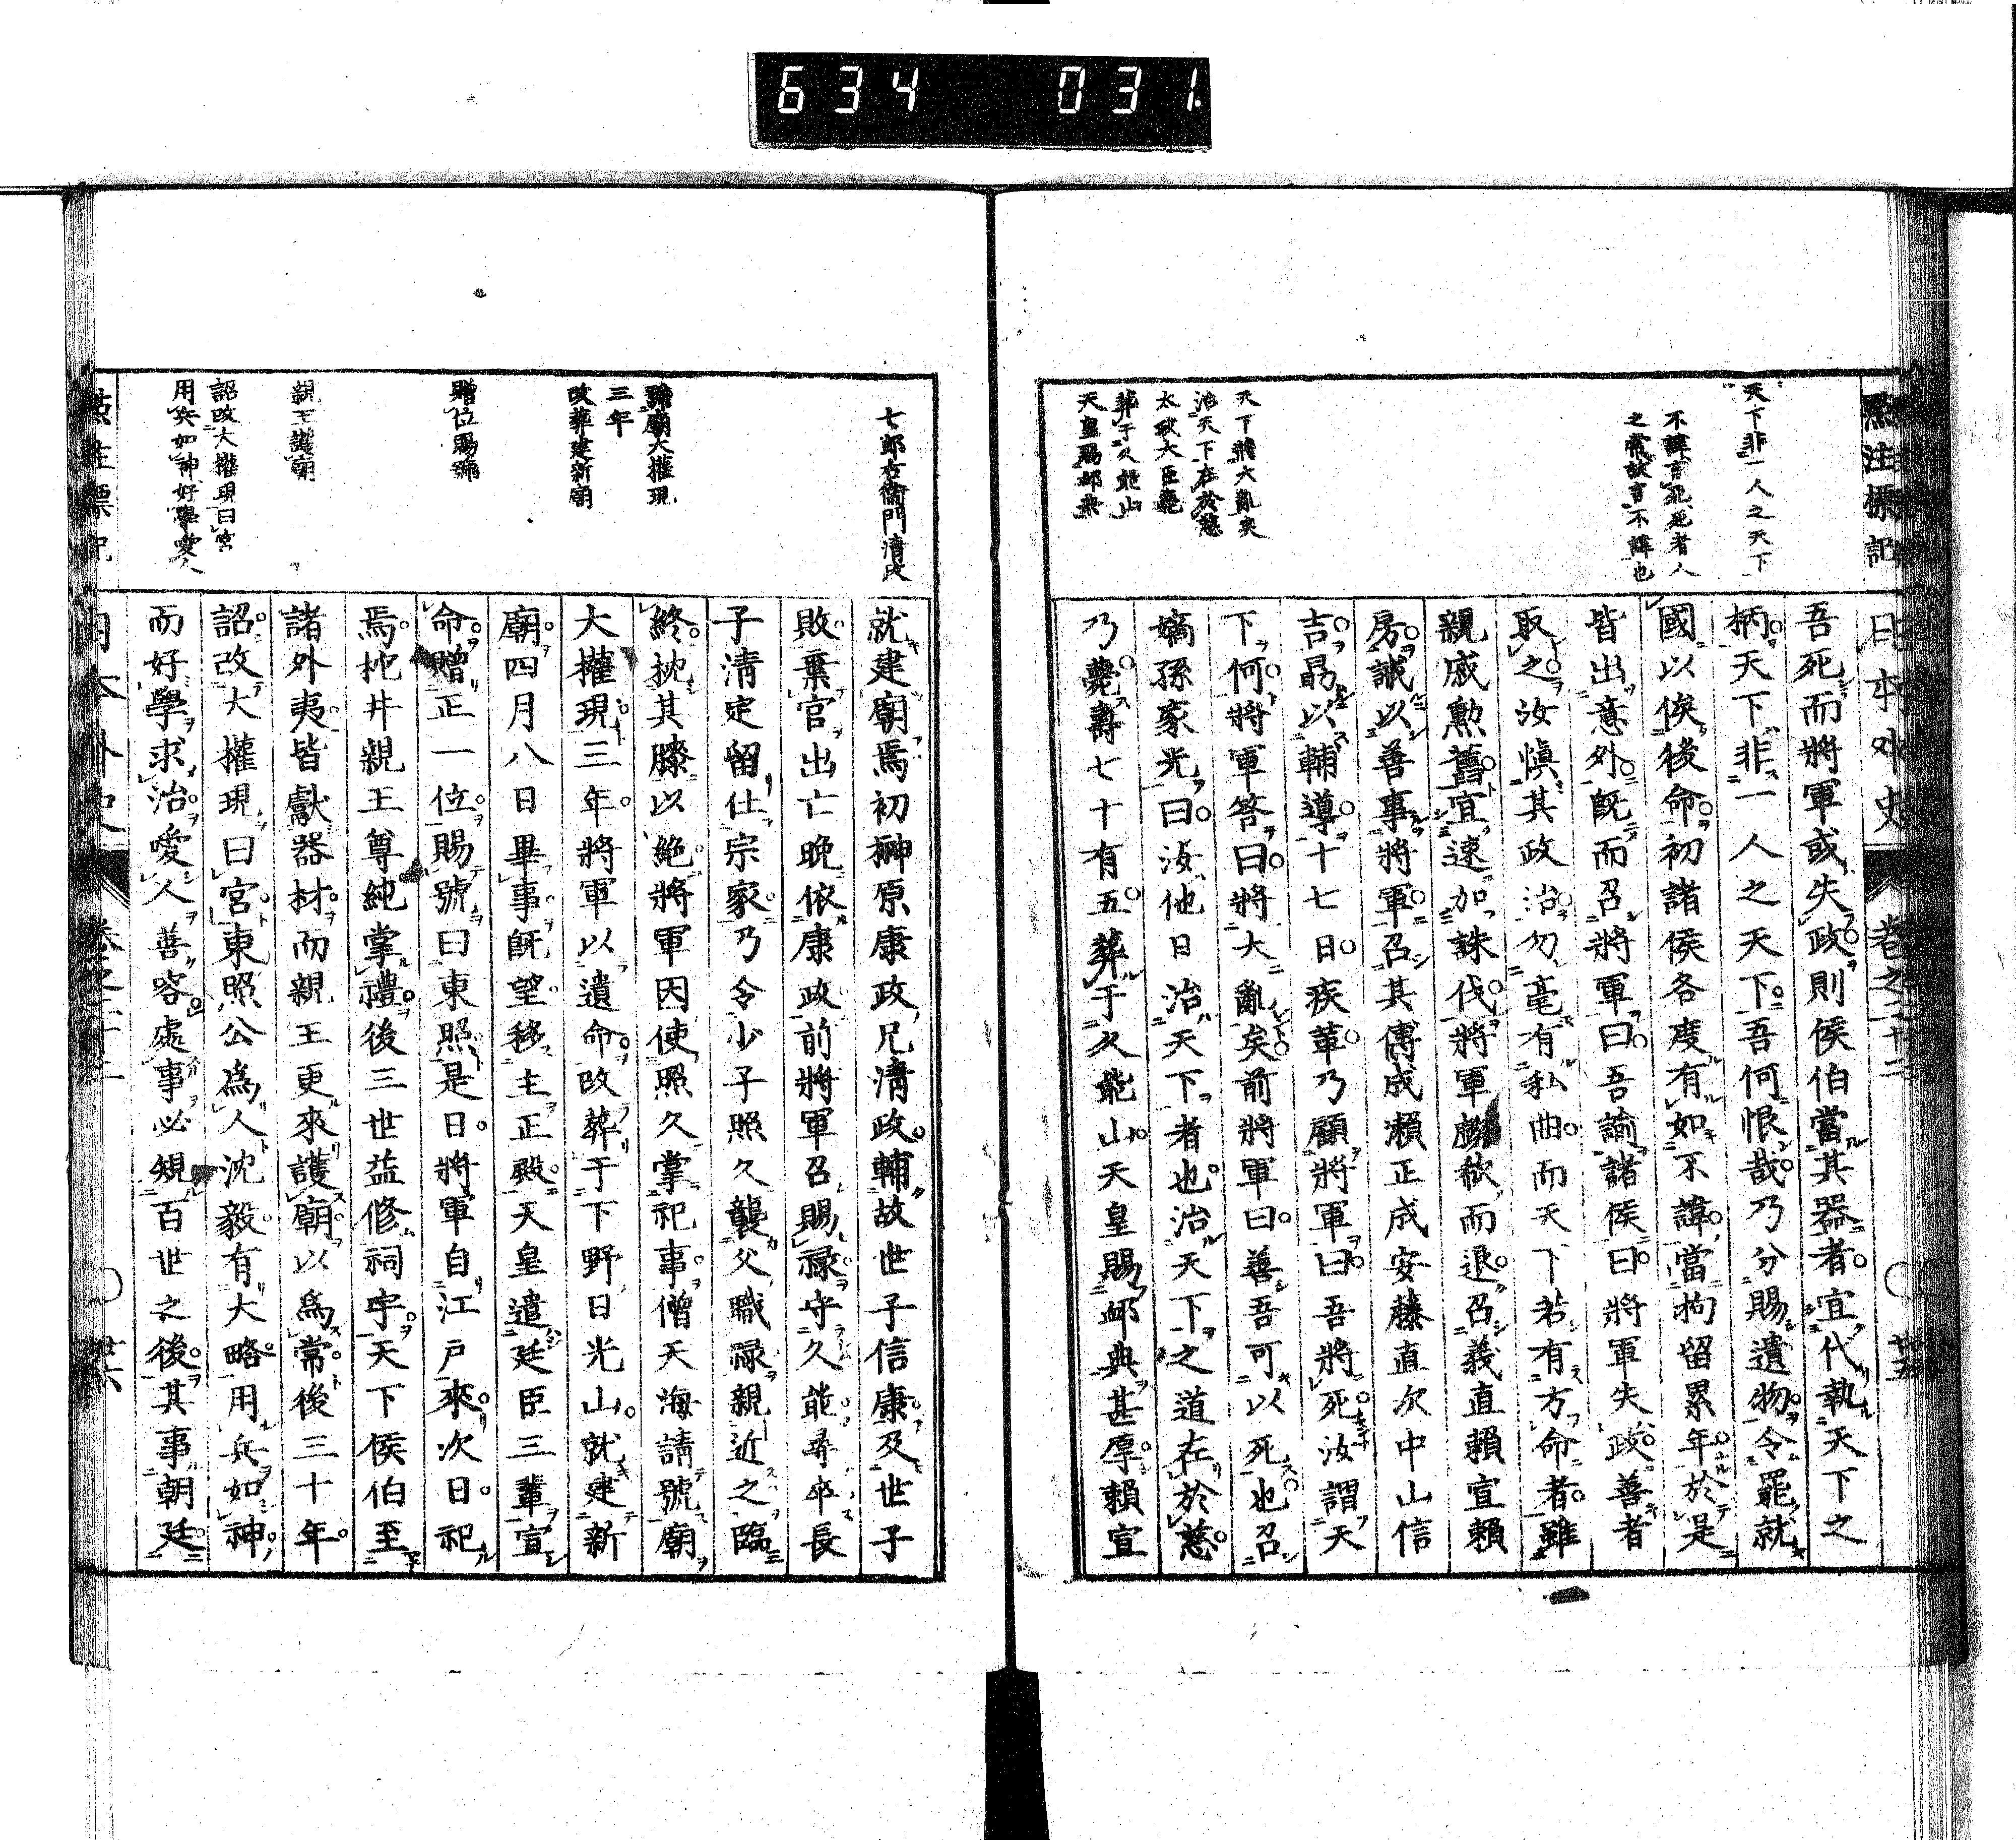 634 031.
點注標記
日本外史 卷之二十二 廿五
天下非一人之天下
不諱言死死者人
之常故言不諱也
天下將大亂矣
治天下在於慈
太政大臣薨
葬于久能山
天皇賜邺典
吾死而將軍或失政則侯伯當其器者宜代執天下之
柄天下非一人之天下吾何恨哉乃分賜遺物令罷就
國以俟後命初諸侯各度有如不諱當拘留累年於是
皆出意外既而召將軍曰吾諭諸侯曰將軍失政善者
取之汝愼其政治勿毫有私曲而天下若有方命者雖
親戚勲舊宜速加誅伐將軍歔欷而退召義直賴宣賴
房誡以善事將軍召其傅成瀬正成安藤直次中山信
吉勗以輔導十七日疾革乃顧將軍曰吾將死汝謂天
下何將軍答曰將大亂矣前將軍曰善吾可以死也召
嫡孫家光曰汝他日治天下者也治天下之道在於慈
乃薨壽七十有五葬于久能山天皇賜邺典甚厚賴宣
七郎右衞門清政
號廟大權現
三年
改葬建新廟
贈位賜號
親王護廟
詔改大權現曰宮
用兵如神好學愛人
就建廟焉初榊原康政兄淸政輔故世子信康及世子
敗棄官出亡晩依康政前將軍召賜祿守久能尋卒長
子清定留仕宗家乃令少子照久襲父職祿親近之臨
終枕其膝以絶將軍因使照久掌祀事僧天海請號廟
大權現三年將軍以遺命改葬于下野日光山就建新
廟四月八日畢事既望移主正殿天皇遣廷臣三輩宣
命贈正一位賜號曰東照是日將軍自江戸來次日祀
焉梶井親王尊純掌禮後三世益修祠宇天下侯伯至
諸外夷皆獻器材而親王更來護廟以爲常後三十年
詔改大權現曰宮東照公爲人沈毅有大略用兵如神
而好學求治愛人善容處事必規百世之後其事朝廷
點注標記
日本外史 卷之二十二 廿六